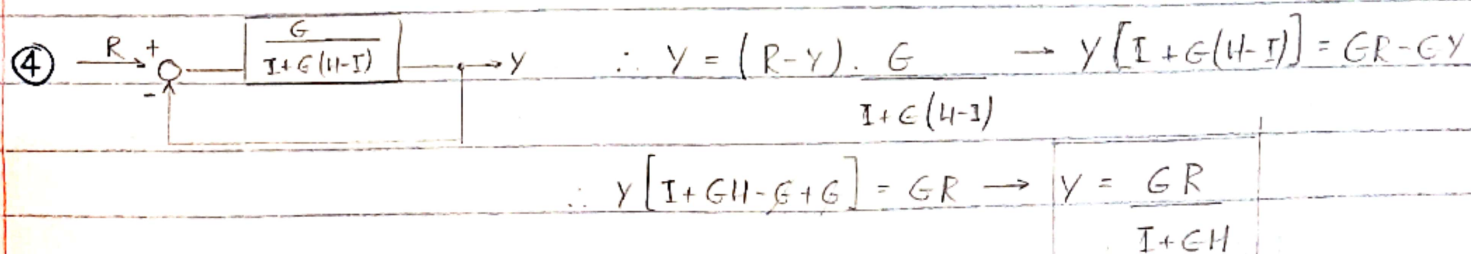 ④ R + G / I+G(H-I) → Y ∴ Y = (R-Y). G / I+G(H-I) → Y[I+G(H-I)] = GR-GY
-
∴ Y[I+GH-G+G] = GR → Y = GR / I+GH